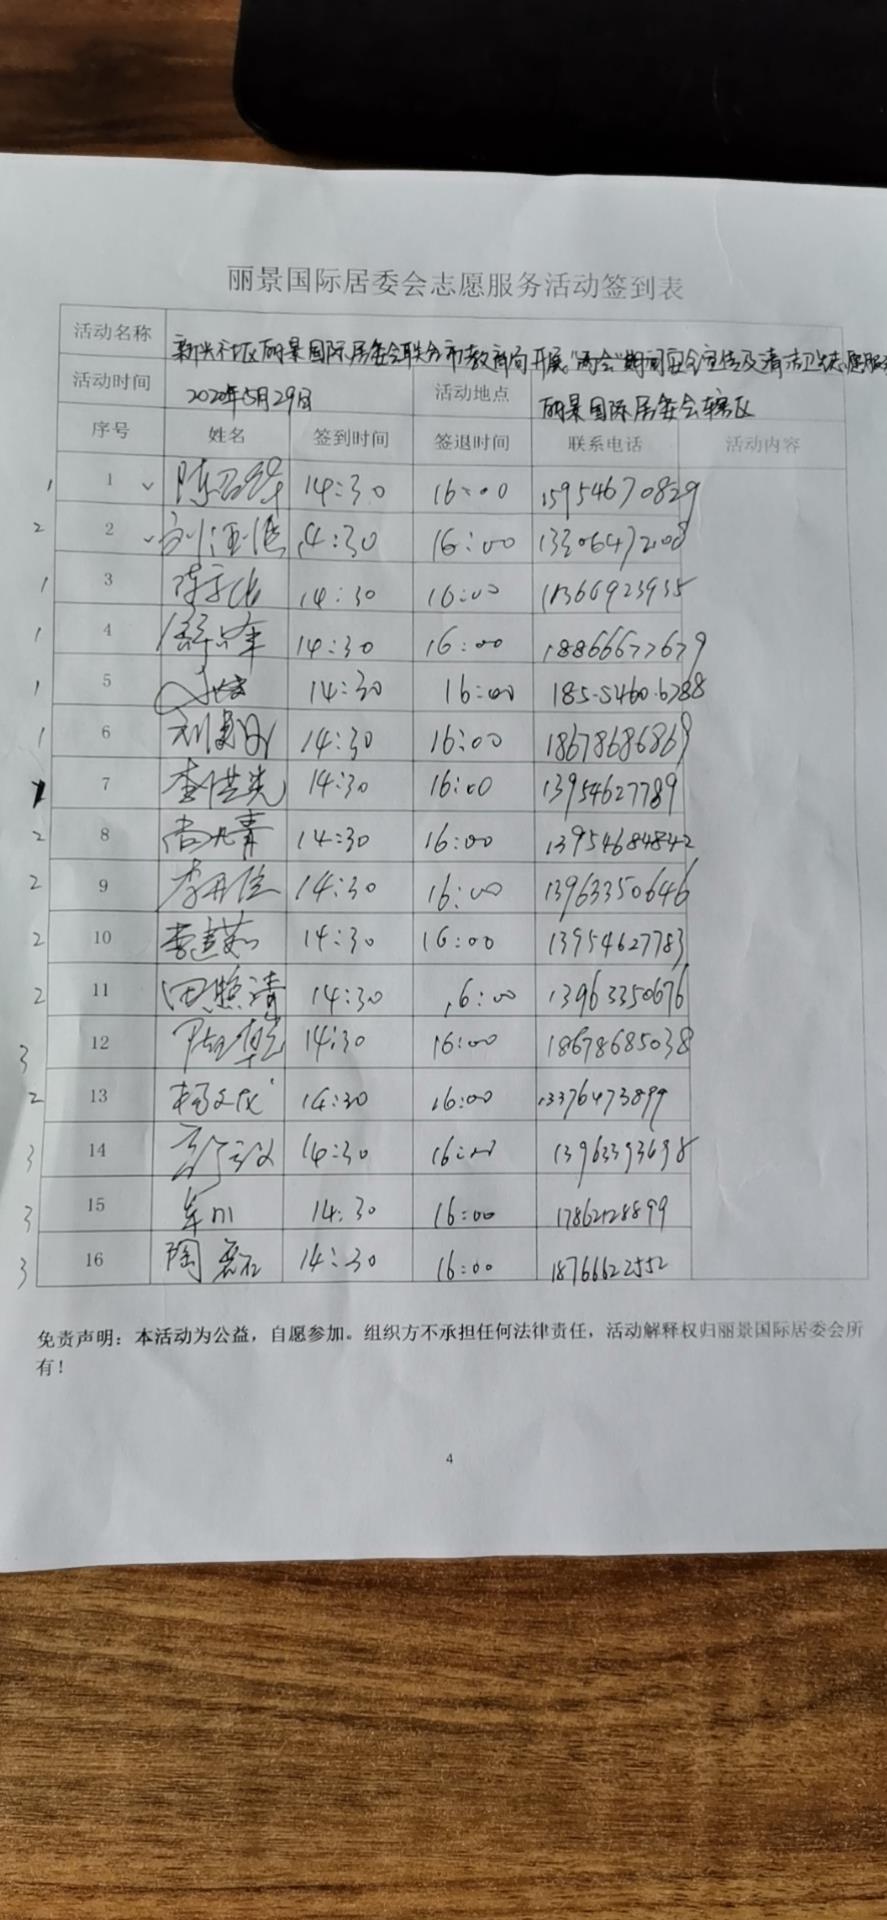 丽景国际居委会志愿服务活动签到表
活动名称 新兴社区丽景国际居委会联合市教育局开展"两会"期间安全宣传及清洁卫生志愿服
活动时间 2020年5月29日 活动地点 丽景国际居委会辖区
序号 姓名 签到时间 签退时间 联系电话 活动内容
1 1 陈 14:30 16:00 15954670829
2 2 刘 14:30 16:00
1 3 陈 14:30 16:00
1 4 14:30 16:00 18866677679
1 5 14:30 16:00 185-5460-6788
1 6 14:30 16:00 18678686869
7 李洪光 14:30 16:00 13954627789
2 8 尚九青 14:30 16:00 13954684842
2 9 李丹 14:30 16:00 13963350646
2 10 李建 14:30 16:00 13954627783
2 11 田照清 14:30 16:00 13963350676
3 12 14:30 16:00 18678685038
2 13 杨文 14:30 16:00 13376473899
3 14 14:30 16:00 13963393698
3 15 牟川 14:30 16:00 17862128899
3 16 陶磊 14:30 16:00 18766622552
免责声明：本活动为公益，自愿参加。组织方不承担任何法律责任，活动解释权归丽景国际居委会所
有！
4